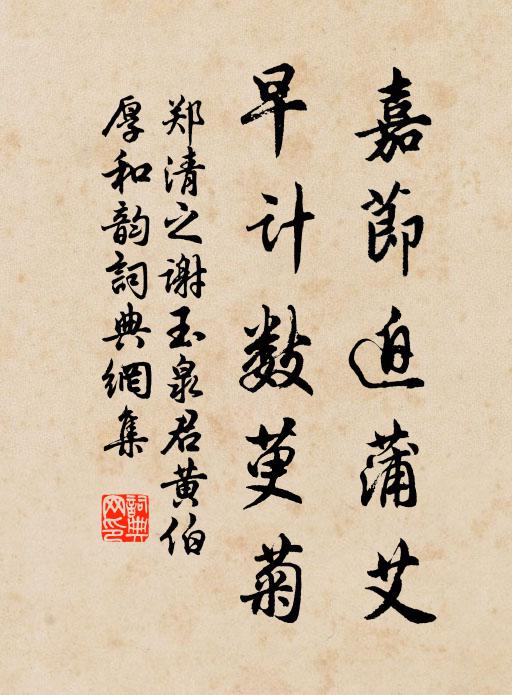 嘉節迫蒲艾
早计数萸菊
郑清之谢玉泉君黄伯
厚和韵詞典網集
詞典
网印